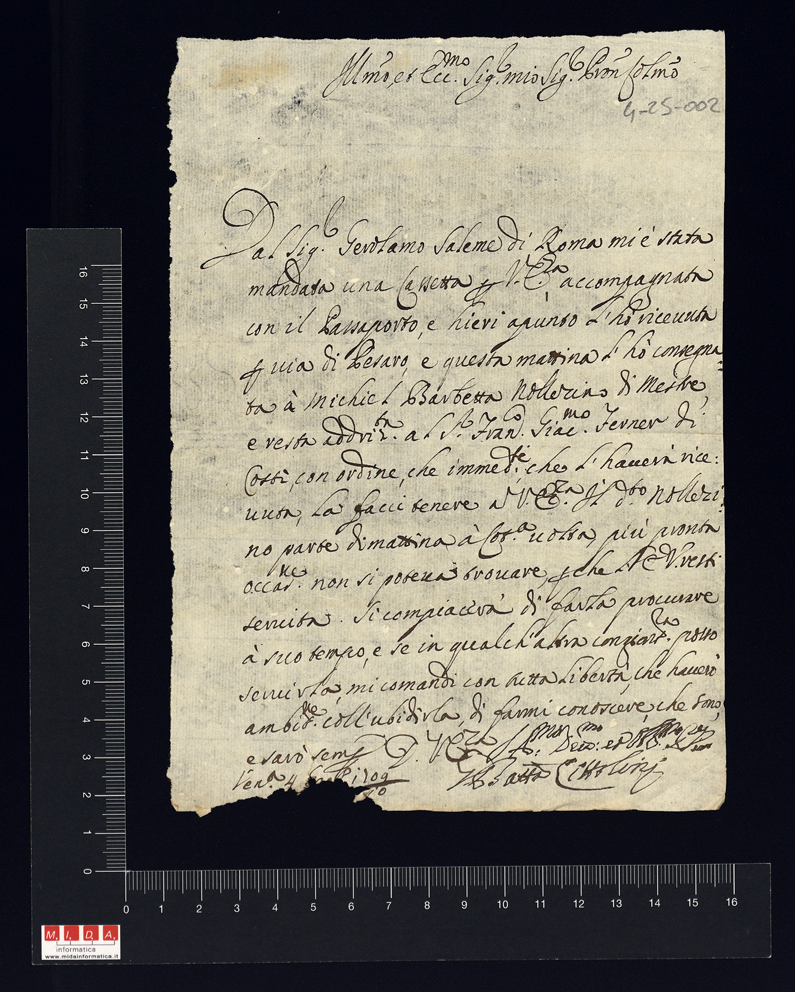 Illmo, et Ecc.mo Sig.r mio Sig.r Pron Colmo
4-25-002
Dal Sig.r Gerolamo Saleme di Roma mi è stata
mandata una Cassetta p V. Ecza accompagnata
con il Passaporto, e hieri apunto l'hò riceuuta
p uia di Pesaro, e questa mattina l'hò consegna=
ta à Michiel Barbetta Nollezino di Mestre,
e resta addri.ta al S.r Fran.o Giac.mo Ferner di
Costì, con ordine, che immed.te che l'hauerà rice:
uuta, la facci tenere a V. Ecza. Il d.to Nollezi=
no parte dimattina à cot.a uolta, più pronta
occas.ne non si poteua trouare pche V.E. resti
seruita. Si compiacerà di farla procurare
à suo tempo, e se in qualch'altra congiont.ra posso
seruirla, mi comandi con tutta libertà, che hauerò
ambit.ne coll'ubidirla, di farmi conoscere, che sono,
e sarò semp
D. V. Ecza
Ven.a 4 1709
Deuo: et
Batta Cittolini
16
15
14
13
12
11
10
9
8
7
6
5
4
3
2
1
0
0 1 2 3 4 5 6 7 8 9 10 11 12 13 14 15 16
M. I. D. A.
informatica
www.midainformatica.it